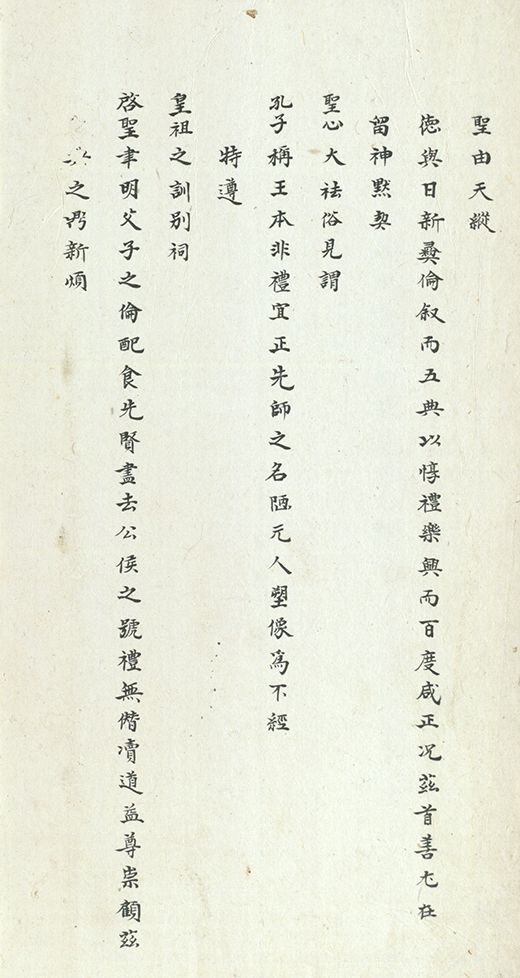 聖由天縱
德與日新彝倫叙而五典以惇禮樂興而百度咸正况茲首善尤在
留神默契
聖心大祛俗見謂
孔子稱王本非禮宜正先師之名陋元人塑像為不經
特遵
皇祖之訓别祠
啓聖聿明父子之倫配食先賢盡去公侯之號禮無僭凟道益尊崇顧茲
之門新煩